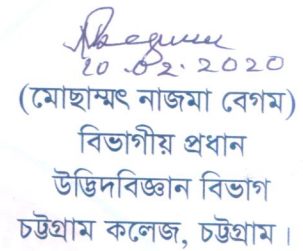 Nbegum
20.02.2020
(মোছাম্মৎ নাজমা বেগম)
বিভাগীয় প্রধান
উদ্ভিদবিজ্ঞান বিভাগ
চট্টগ্রাম কলেজ, চট্টগ্রাম।